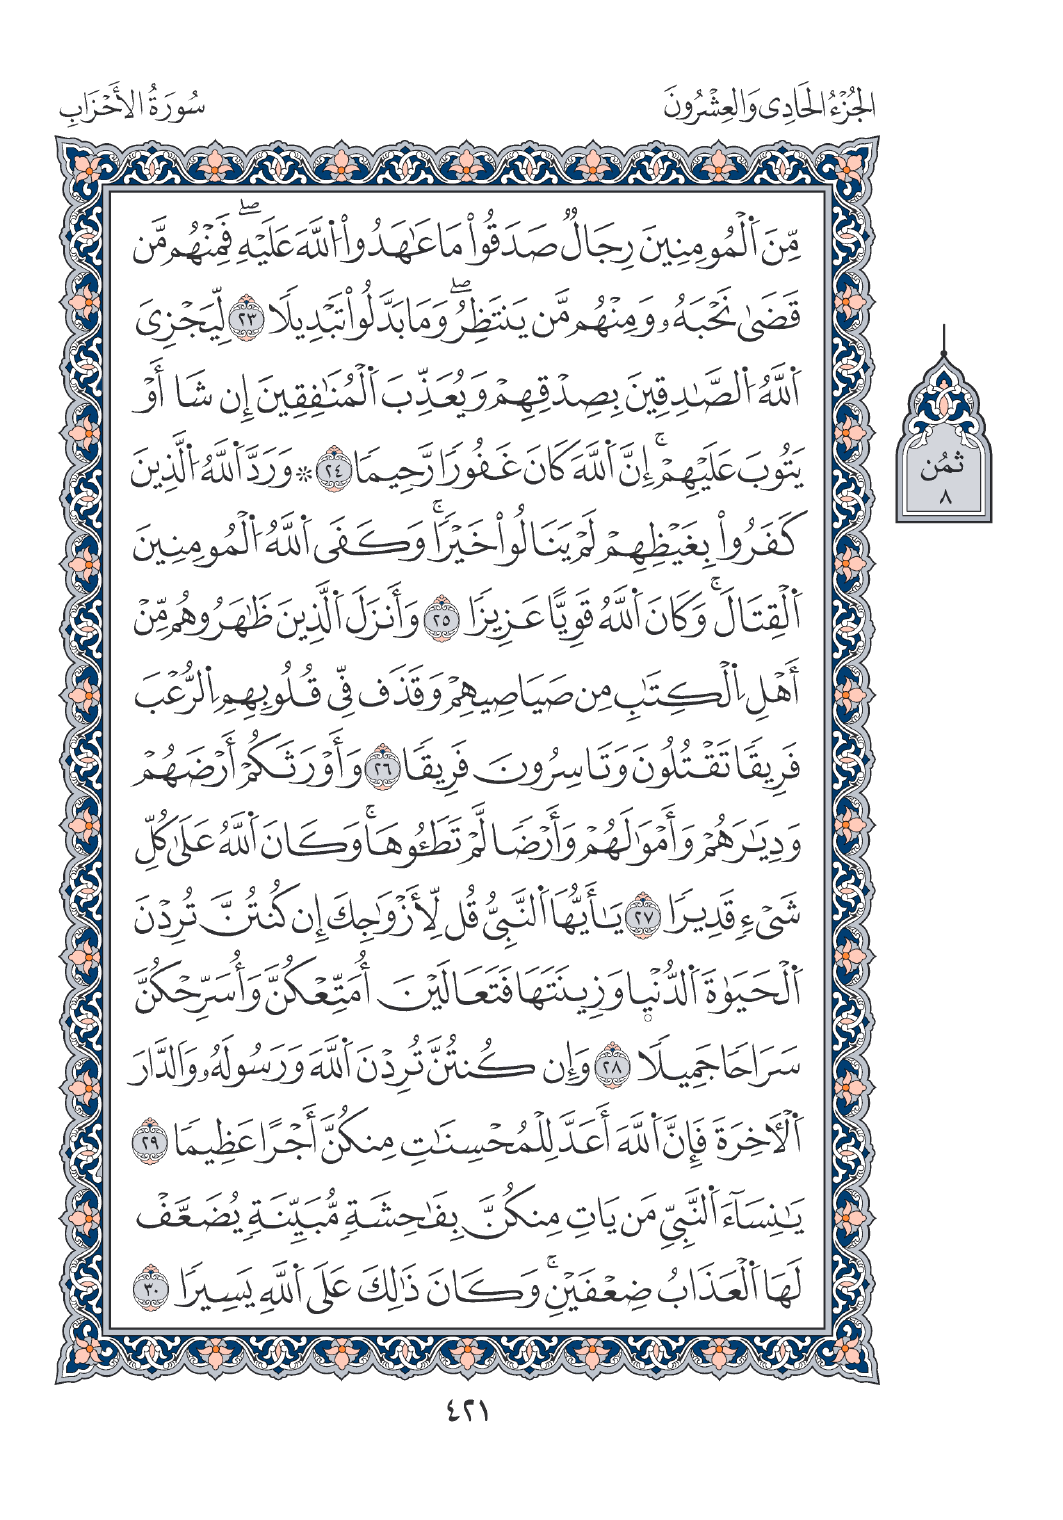 الجُزْءُ الحَادِى وَالعِشْرُونَ
سُورَةُ الأَحْزَابِ
مِّنَ اَ۬لْمُومِنِينَ رِجَالٞ صَدَقُواْ مَا عَٰهَدُواْ اُ۬للَّهَ عَلَيْهِۖ فَمِنْهُم مَّن
قَضَىٰ نَحْبَهُۥ وَمِنْهُم مَّن يَنتَظِرُۖ وَمَا بَدَّلُواْ تَبْدِيلٗا ٢٣ لِّيَجْزِىَ
اَ۬للَّهُ اُ۬لصَّٰدِقِينَ بِصِدْقِهِمْ وَيُعَذِّبَ اَ۬لْمُنَٰفِقِينَ إِن شَا أَوْ
يَتُوبَ عَلَيْهِمْۚ إِنَّ اَ۬للَّهَ كَانَ غَفُورٗا رَّحِيمٗا ٢٤ ۞ وَرَدَّ اَ۬للَّهُ اُ۬لَّذِينَ
كَفَرُواْ بِغَيْظِهِمْ لَمْ يَنَالُواْ خَيْرٗاۚ وَكَفَى اَ۬للَّهُ اُ۬لْمُومِنِينَ
اَ۬لْقِتَالَۚ وَكَانَ اَ۬للَّهُ قَوِيًّا عَزِيزٗا ٢٥ وَأَنزَلَ اَ۬لَّذِينَ ظَٰهَرُوهُم مِّنْ
أَهْلِ اِ۬لْكِتَٰبِ مِن صَيَاصِيهِمْ وَقَذَف فِّى قُلُوبِهِمِ اِ۬لرُّعْبَ
فَرِيقٗا تَقْتُلُونَ وَتَاسِرُونَ فَرِيقٗا ٢٦ وَأَوْرَثَكُمْ أَرْضَهُمْ
وَدِيَٰرَهُمْ وَأَمْوَٰلَهُمْ وَأَرْضٗا لَّمْ تَطَـُٔوهَاۚ وَكَانَ اَ۬للَّهُ عَلَىٰ كُلِّ
شَىْءٖ قَدِيرٗا ٢٧ يَٰأَيُّهَا اَ۬لنَّبِىُّ قُل لِّأَزْوَٰجِكَ إِن كُنتُنَّ تُرِدْنَ
اَ۬لْحَيَوٰةَ اَ۬لدُّنْيٜا وَزِينَتَهَا فَتَعَالَيْنَ أُمَتِّعْكُنَّ وَأُسَرِّحْكُنَّ
سَرَاحٗا جَمِيلٗا ٢٨ وَإِن كُنتُنَّ تُرِدْنَ اَ۬للَّهَ وَرَسُولَهُۥ وَالدَّارَ
اَ۬لْأٓخِرَةَ فَإِنَّ اَ۬للَّهَ أَعَدَّ لِلْمُحْسِنَٰتِ مِنكُنَّ أَجْرًا عَظِيمٗا ٢٩
يَٰنِسَآءَ اَ۬لنَّبِىِّ مَن يَاتِ مِنكُنَّ بِفَٰحِشَةٖ مُّبَيِّنَةٖ يُضَعَّفْ
لَهَا اَ۬لْعَذَابُ ضِعْفَيْنِۚ وَكَانَ ذَٰلِكَ عَلَى اَ۬للَّهِ يَسِيرٗا ٣٠
ثمُن
٨
٤٢١